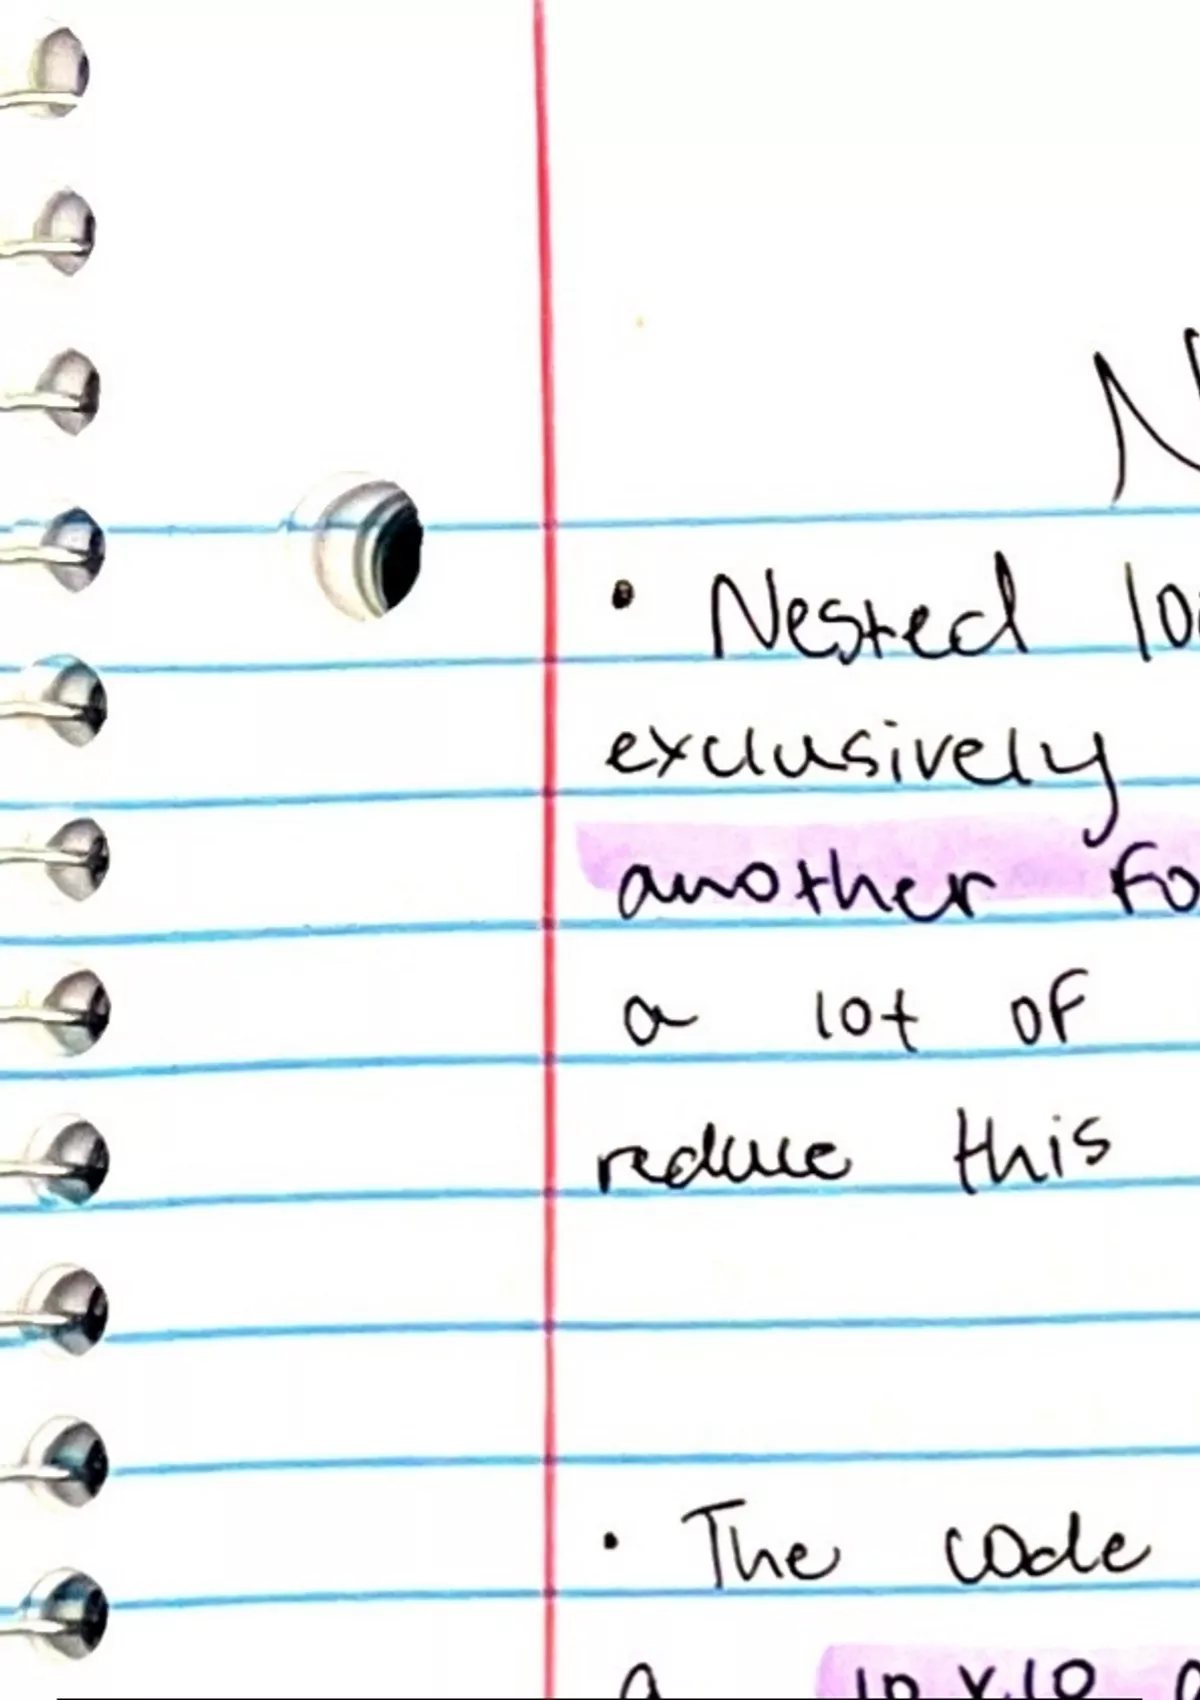 N
• Nested loo
exclusively
another fo
a lot of
reduce this
• The code
a 10 x 10